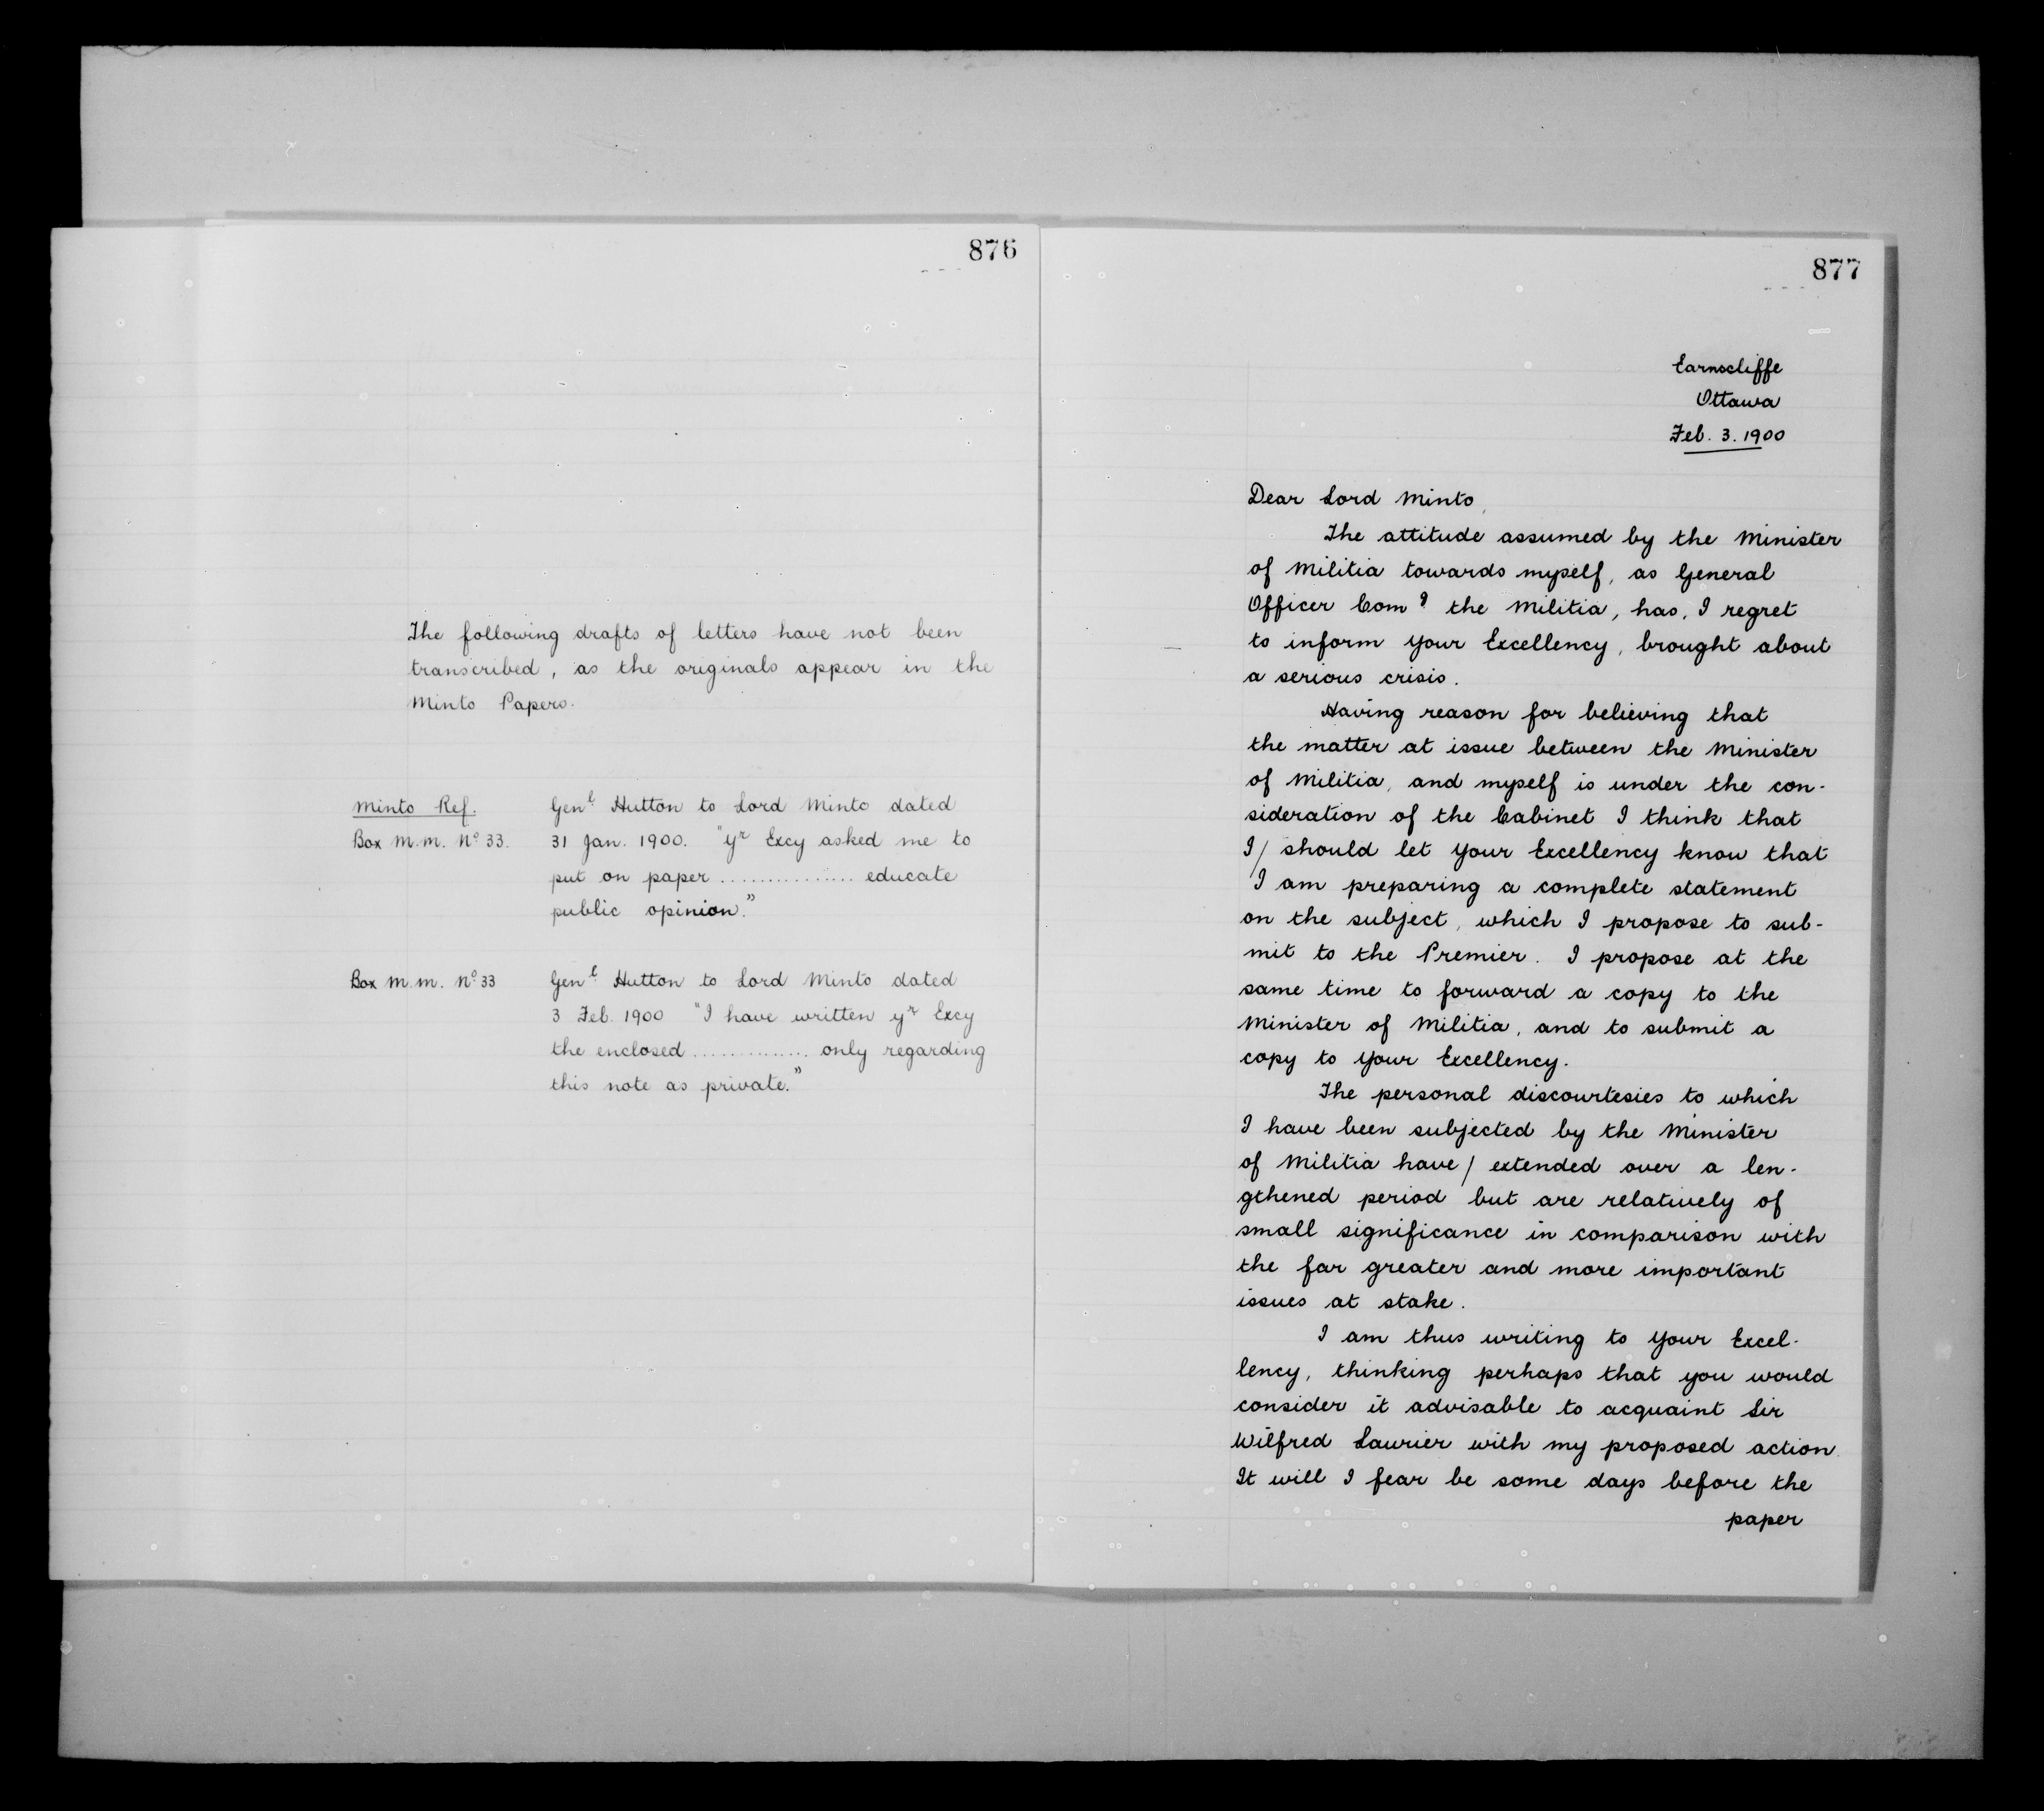 876
The following drafts of letters have not been
transcribed, as the originals appear in the
Minto Papers.
Minto Ref.
Box M.M. Nº 33.
Genl Hutton to Lord Minto dated
31 Jan. 1900. "Yr Excy asked me to
put on paper ................ educate
public opinion."
Box M.M. Nº 33
Genl Hutton to Lord Minto dated
3 Feb. 1900 "I have written yr Excy
the enclosed .............. only regarding
this note as private."
877
Earnscliffe
Ottawa
Feb. 3. 1900
Dear Lord Minto,
The attitude assumed by the Minister
of Militia towards myself, as General
Officer Comd the Militia, has, I regret
to inform Your Excellency, brought about
a serious crisis.
Having reason for believing that
the matter at issue between the Minister
of Militia, and myself is under the con-
sideration of the Cabinet I think that
I/ should let Your Excellency know that
I am preparing a complete statement
on the subject, which I propose to sub-
mit to the Premier. I propose at the
same time to forward a copy to the
Minister of Militia, and to submit a
copy to Your Excellency.
The personal discourtesies to which
I have been subjected by the Minister
of Militia have/ extended over a len-
gthened period but are relatively of
small significance in comparison with
the far greater and more important
issues at stake.
I am thus writing to Your Excel-
lency, thinking perhaps that you would
consider it advisable to acquaint Sir
Wilfred Laurier with my proposed action.
It will I fear be some days before the
paper